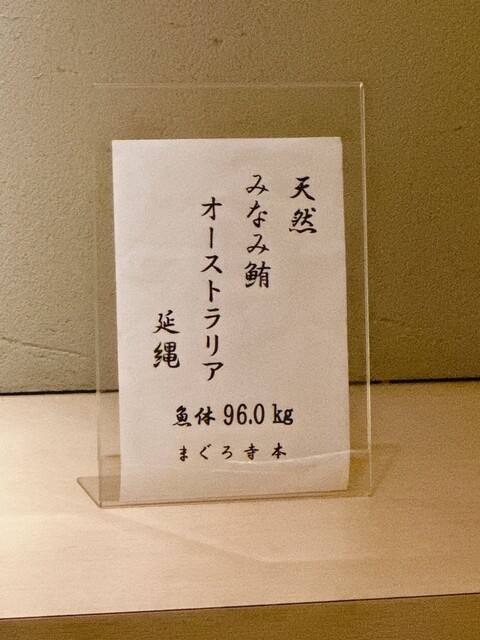 天然
みなみ鮪
オーストラリア
延縄
魚体 96.0 kg
まぐろ寺本